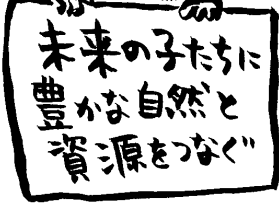 未来の子たちに
豊かな自然と
資源をつなぐ